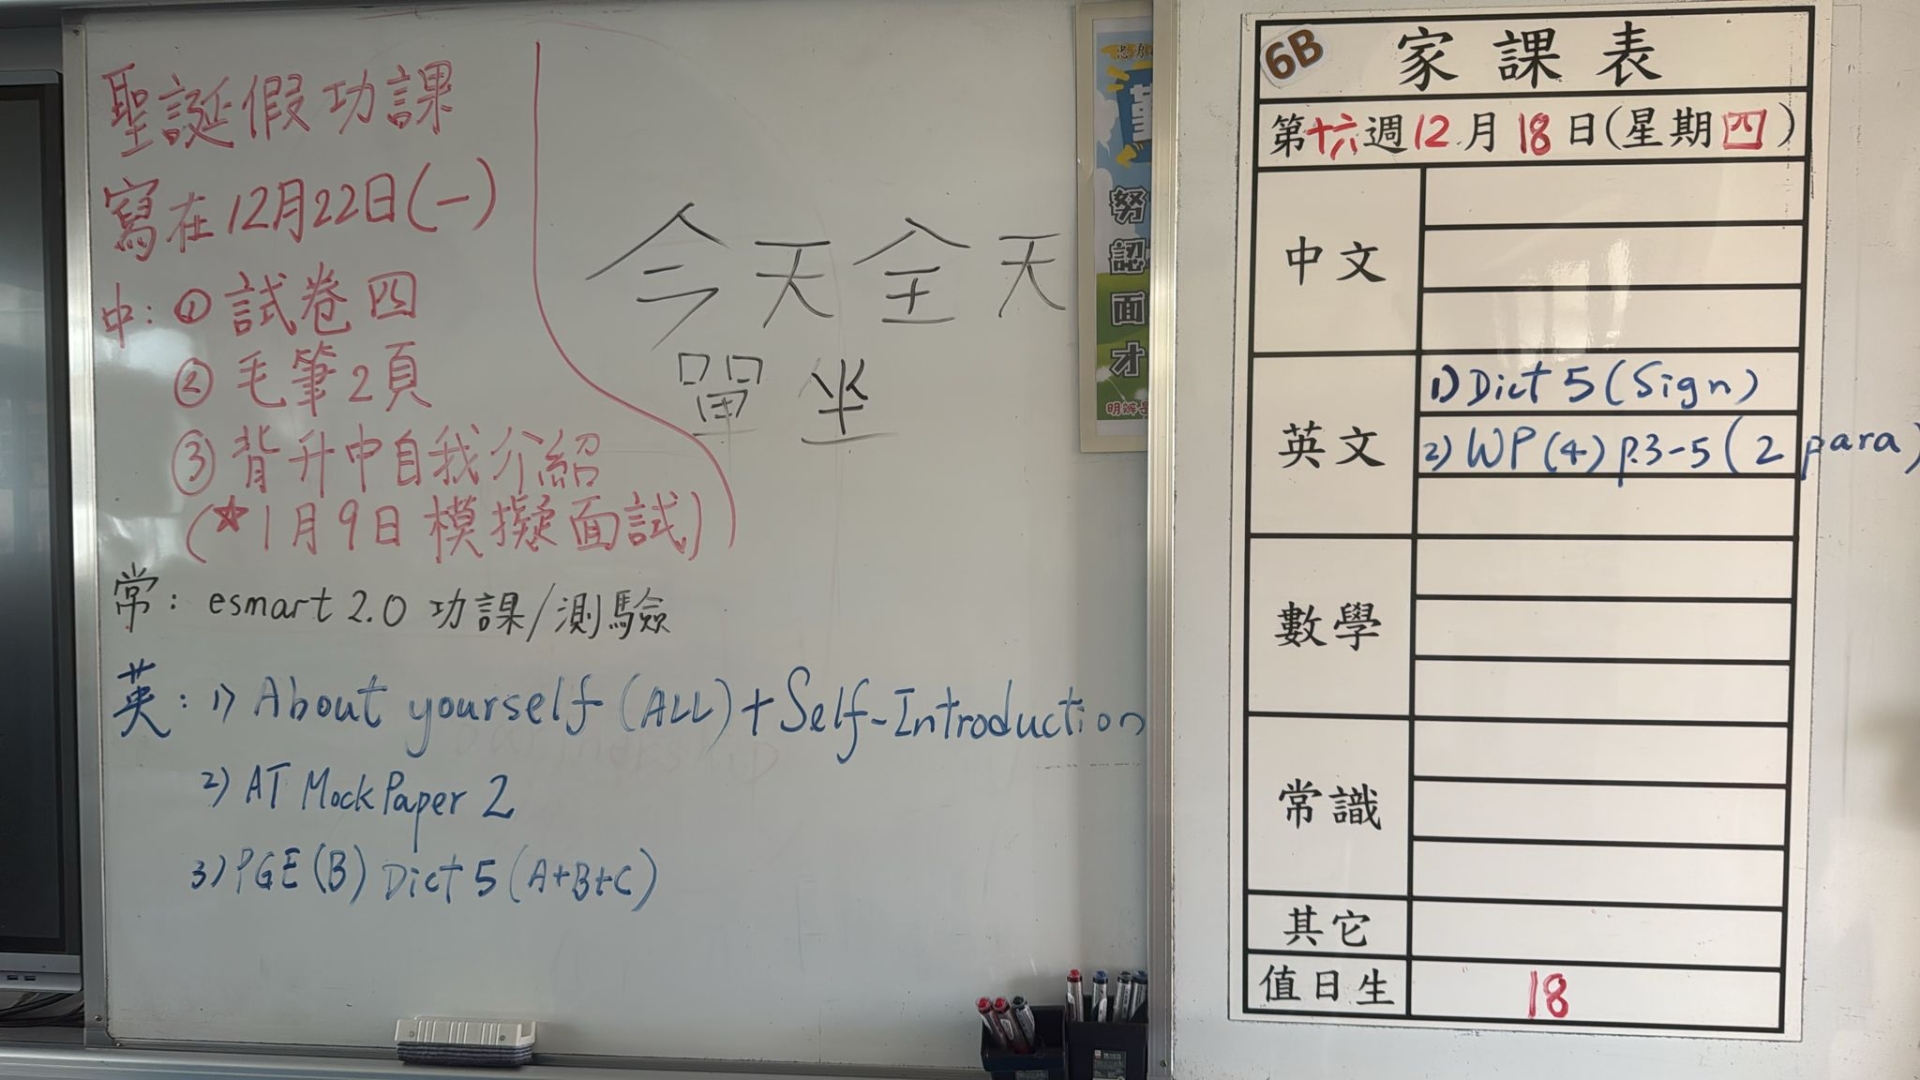 聖誕假功課
寫在12月22日(一)
中: ① 試卷四
② 毛筆2頁
③ 背升中自我介紹
(★1月9日模擬面試)
常: esmart 2.0 功課/測驗
英: 1) About yourself (ALL) + Self-Introduction
2) AT Mock Paper 2
3) PGE (B) Dict 5 (A+B+C)
今天全天
單坐
努
認
面
才
6B 家課表
第十六週12月18日(星期四)
中文
英文
1) Dict 5 (Sign)
2) WP (4) p.3-5 (2 para)
數學
常識
其它
值日生 18